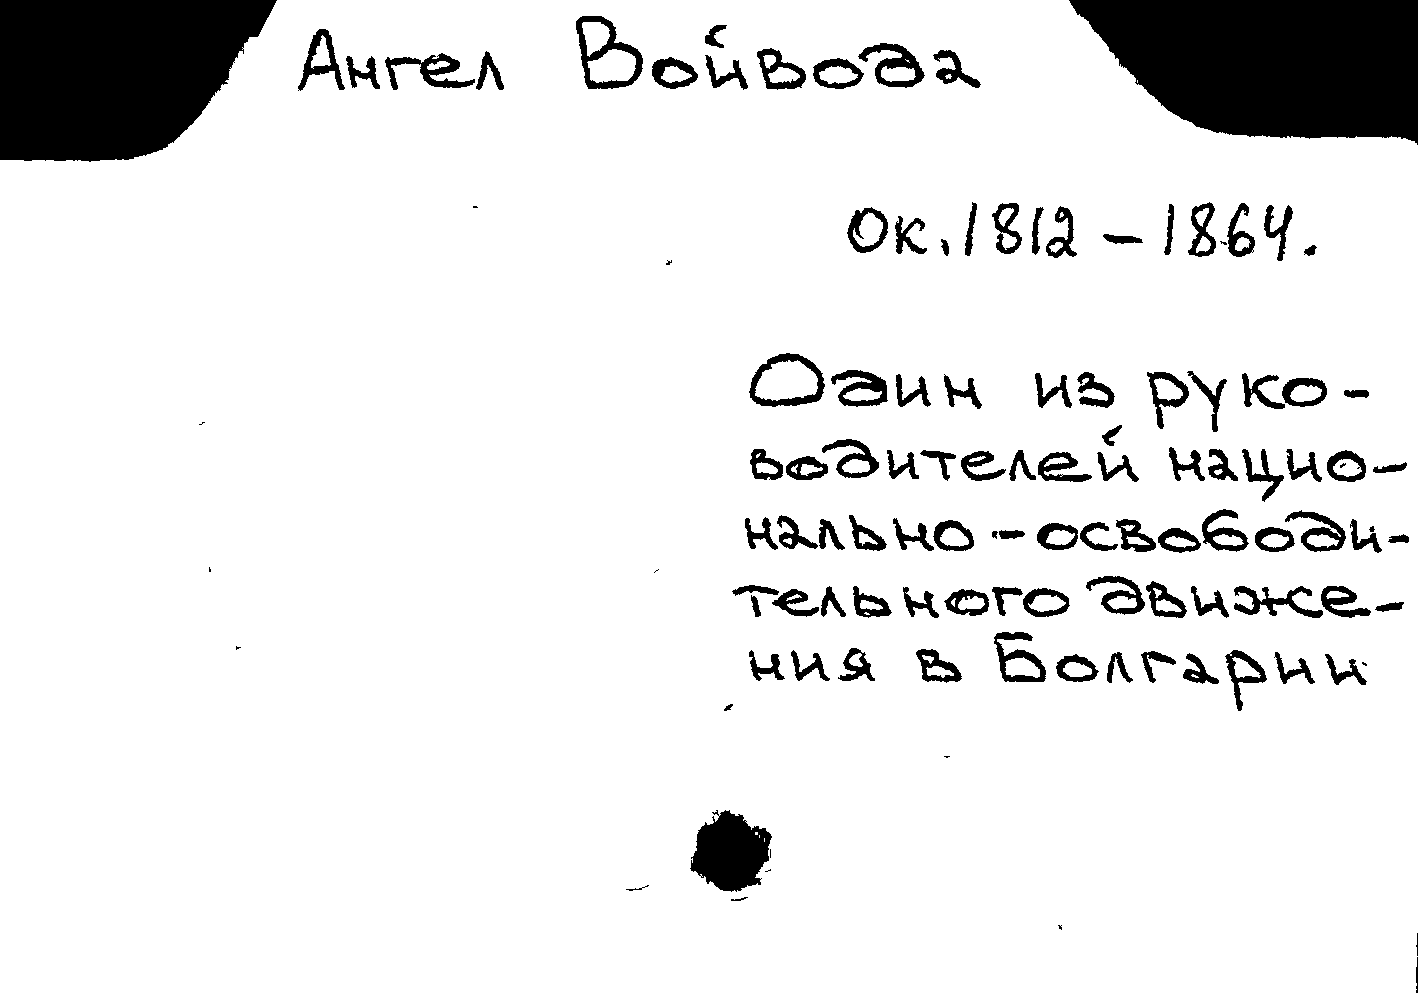 Ангел Войвода
Ок. 1812 - 1864.
Один из руко-
водителей нацио-
нально-освободи-
тельного движе-
ния в Болгарии